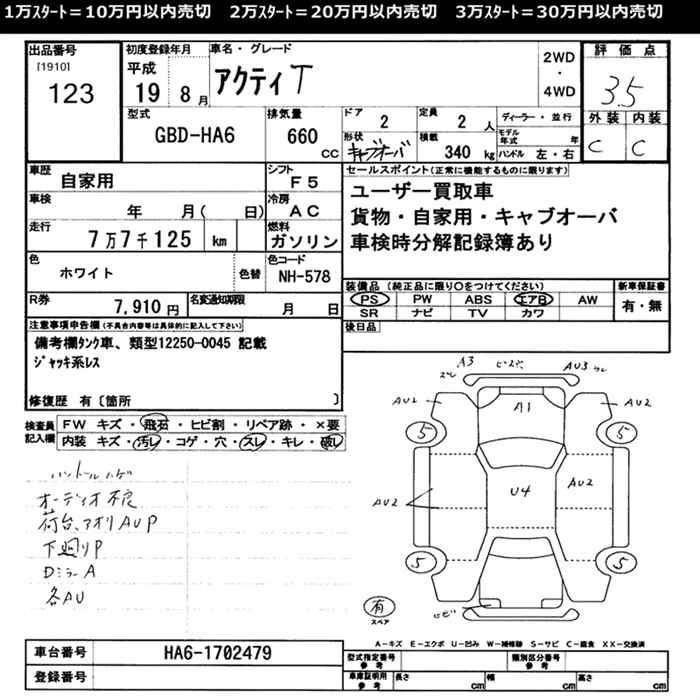 1万ｽﾀｰﾄ＝10万円以内売切　2万ｽﾀｰﾄ＝20万円以内売切　3万ｽﾀｰﾄ＝30万円以内売切
出品番号
[1910]
123
初度登録年月
平成
19 8 月
車名・グレード
アクティ T
2WD
・
4WD
評価点
3.5
外装 内装
C C
型式
GBD-HA6
排気量
660 cc
ドア
2
定員
2 人
形状
キャブオーバ
積載
340 kg
ディーラー・並行
モデル年式 年
ハンドル 左・右
車歴
自家用
シフト
F5
車検
年 月( 日)
冷房
AC
走行
7万7千125 km
燃料
ガソリン
色
ホワイト
色替
色コード
NH-578
R券
7,910 円
名変通知期限
月 日
セールスポイント(正常に機能するものに限ります)
ユーザー買取車
貨物・自家用・キャブオーバ
車検時分解記録簿あり
装備品（純正品に限り○をつけてください）
PS PW ABS エアB AW
SR ナビ TV カワ
新車保証書
有・無
後日品
注意事項申告欄(不具合内容等は具体的に記入して下さい)
備考欄ﾀﾝｸ車、類型12250-0045 記載
ジャッキ系レス
修復歴 有〔箇所 〕
検査員
記入欄
FW キズ・飛石・ヒビ割・リペア跡・×要
内装 キズ・汚レ・コゲ・穴・スレ・キレ・破レ
ハンドルハゲ
オーディオ不良
荷台、アオリAUP
下廻りP
DミラーA
各AU
A3
ズレ
ビス穴
AU3
AU2
A1
AU2
5
5
AU2
U4
AU2
5
5
有
スペア
サビ
A－キズ E－エクボ U－凹み W－補修跡 S－サビ C－腐食 XX－交換済
車台番号
HA6-1702479
登録番号
型式指定番号
参考
類別区分番号
参考
車庫証明用
参考
長さ cm
幅 cm
高さ cm